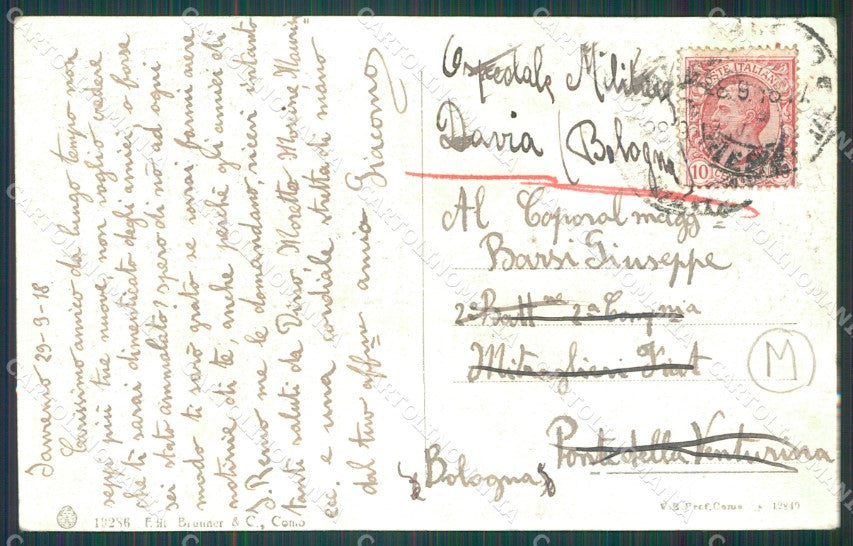 29-9-18
Carissimo amico da lungo tempo non
seppi più tue nuove non voglio credere
che ti sarai dimenticato degli amici, o forse
sei stato ammalato? spero di no, ad ogni
modo ti sarò grato se vorrai farmi avere
notizie di te, anche perchè gli amici di
me le domandano, ricevi intanto
tanti saluti da Moretto
ecc. e una cordiale stretta di mano
dal tuo affmo amico Giacomo
Ospedale Militare
Davia (Bologna)
POSTE ITALIANE
10
Al Caporal magg=
Barsi Giuseppe
2a Batt=ne 2a Compnia
Mitraglieri Fiat
M
Ponte della Venturina
(Bologna)
13286 Edit Brunner & C., Como
V.e B. Prof. Como
CARTOLINOMANIA